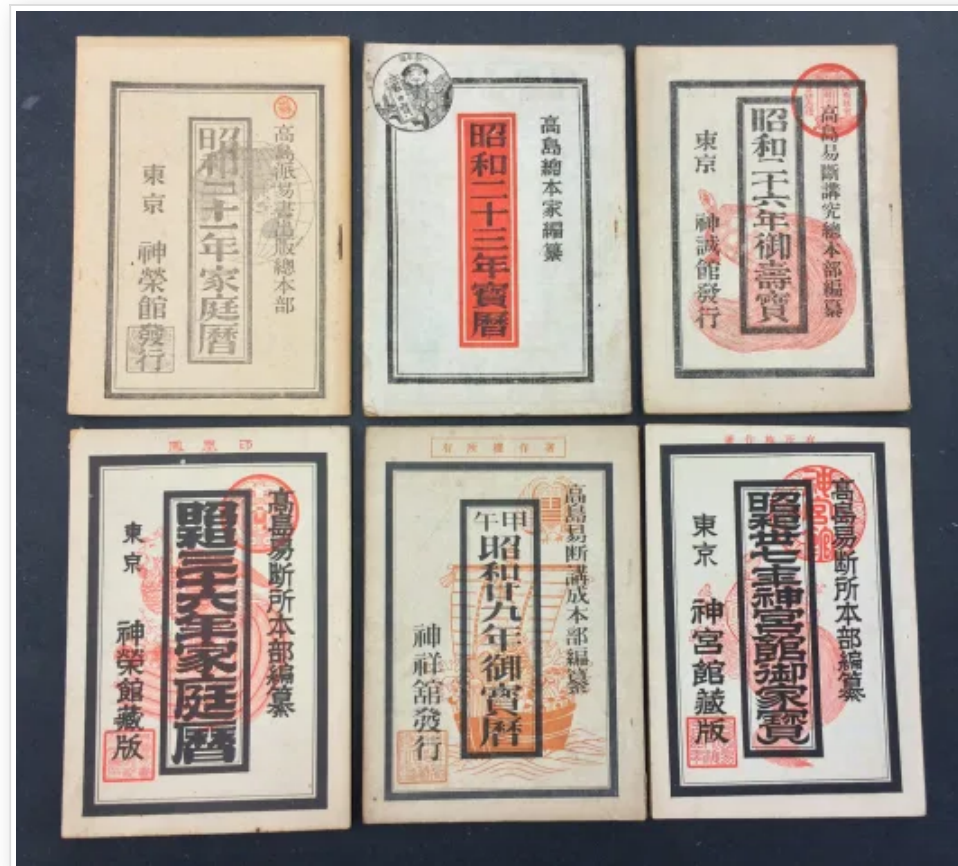 高島派易書出版總本部
昭和二十一年家庭暦
東京 神榮館發行
高島總本家編纂
昭和二十三年寶暦
高島易斷講究總本部編纂
昭和二十六年御壽寶
東京 神誠館發行
鳳凰印
高島易断所本部編纂
昭和三十六年家庭暦
東京 神榮館藏版
著作權所有
高島易断講成本部編纂
甲午
昭和廿九年御寶暦
神祥舘發行
著作権所有
高島易断所本部編纂
昭和卅七年神宮館御家寶
東京 神宮館藏版
神宮館